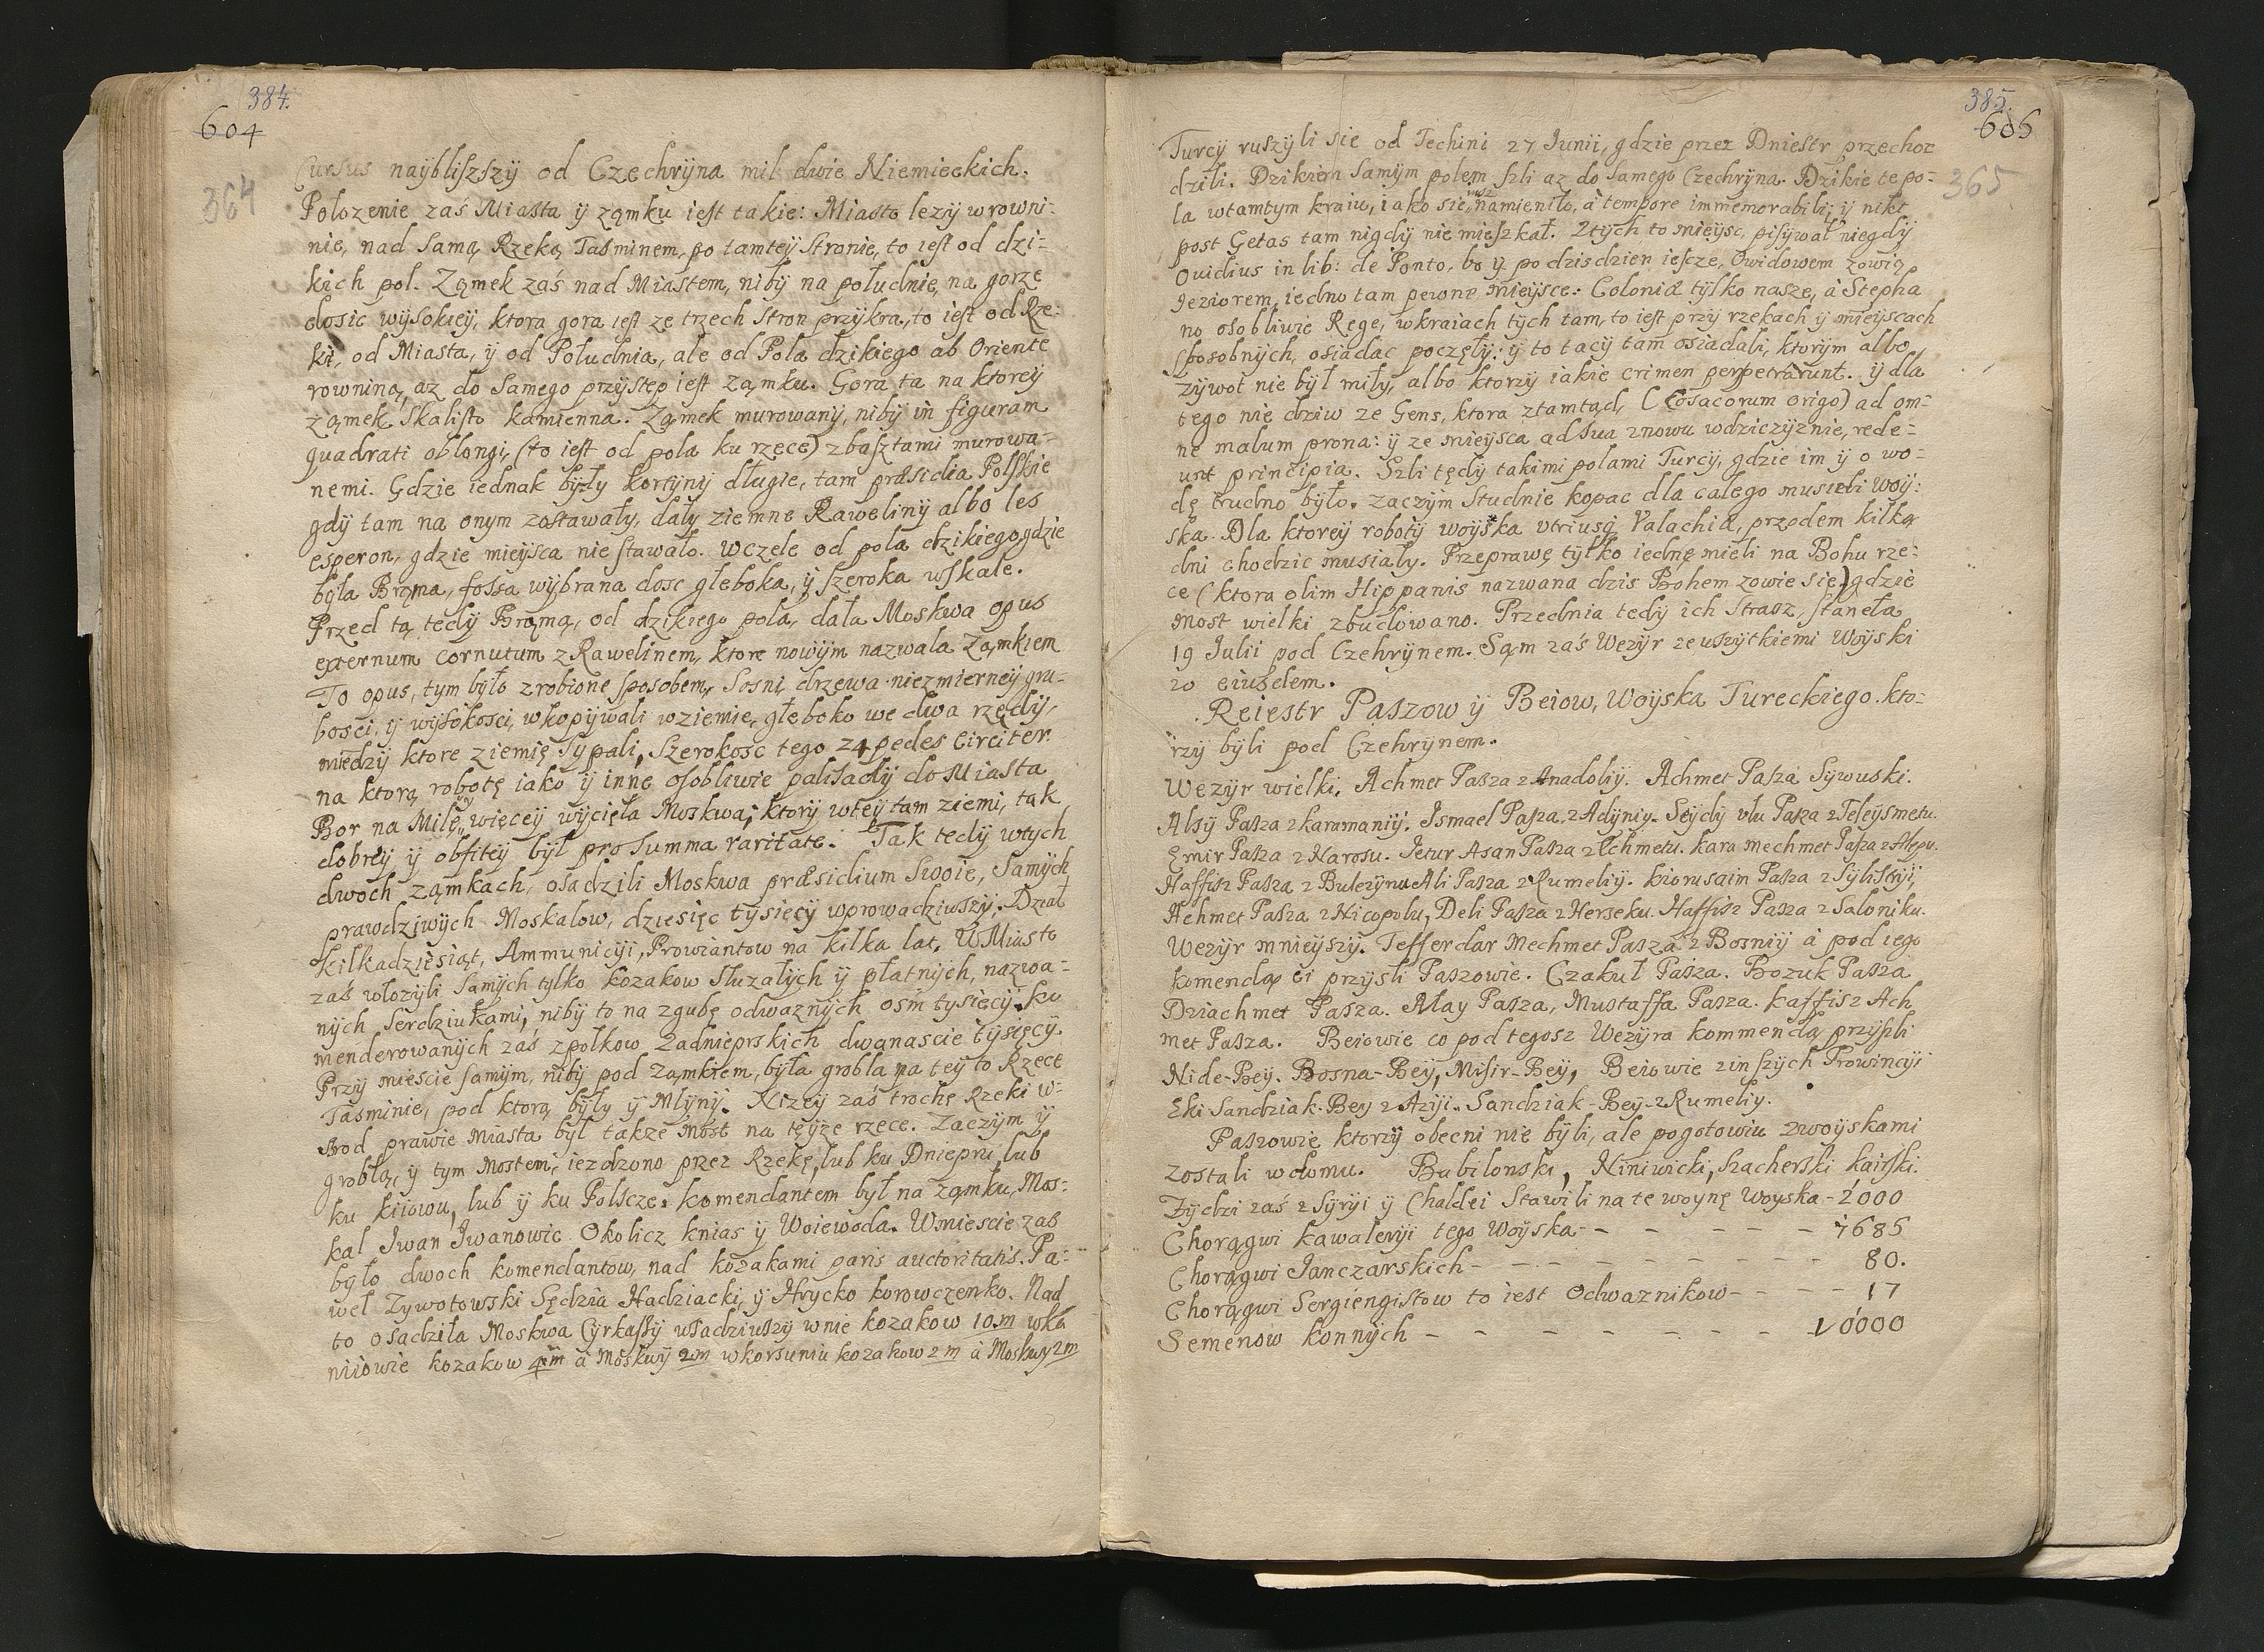 384.
604
364
Cursus naÿblisszÿ od Czechrÿna mil dwie Niemieckich.
Polozenie zaś Miasta ÿ ząmku iest takie: Miasto lezÿ w rowni-
nie, nad samą Rzeką Tasminem, po tamteÿ stronie, to iest od dzi-
kich pol. Ząmek zaś nad Miastem, nibÿ na południe, na gorze
dosic wÿsokieÿ, ktora gora iest ze trzech stron przÿkra, to iest od Rze-
ki, od Miasta, ÿ od Południa, ale od Pola dzikiego ab Oriente
rowniną, az do samego przÿstęp iest ząmku. Gora ta na ktoreÿ
ząmek skalisto kamienna. Ząmek murowanÿ, nibÿ in figuram
quadrati oblongi, (to iest od pola ku rzece) z basztami murowa-
nemi. Gdzie iednak bÿłÿ kortÿnÿ długie, tam præsidia Polskie
gdÿ tam na onÿm zostawałÿ, dałÿ ziemne Rawelinÿ albo les
esperon, gdzie mieÿsca nie stawało. W czele od pola dzikiego gdzie
bÿła Brąma, fossa wÿbrana dosc głeboka, ÿ szeroka w skale.
Przed tą tedÿ Brąmą, od dzikiego pola, dała Moskwa opus
externum cornutum z Rawelinem, ktore nowÿm nazwala Ząmkiem
To opus, tym bÿło zrobione sposobem, Sosni drzewa niezmierneÿ gru-
bosci, ÿ wÿsokosci, wkopÿwali w ziemie, głeboko we dwa rzędÿ,
miedzÿ ktore ziemię sÿpali, Szerokosc tego 24 pedes circiter.
na ktorą robotę iako ÿ inne osobliwie palisadÿ do Miasta
Bor na Milę ÿ więceÿ wÿcięła Moskwa; ktorÿ w teÿ tam ziemi, tak
dobreÿ ÿ obfiteÿ bÿł pro summa raritate. Tak tedÿ w tych
dwoch ząmkach, osadzili Moskwa præsidium swoie, samÿch
prawdziwÿch Moskalow, dziesięc tÿsięcÿ wprowadziwszÿ. Dział
kilkadziesiąt, Ammuniciji, Prowiantow na kilka lat. W Miasto
zaś włozÿli samÿch tÿlko kozakow słuzałÿch ÿ płatnÿch, nazwa-
nÿch Serdziukami, nibÿ to na zgubę odwaznÿch osm tÿsiecÿ. ko
menderowanÿch zaś z połkow Zadnieprskich dwanascie tÿsięcÿ.
Przÿ miescie samÿm, nibÿ pod Ząmkiem, bÿła grobla na teÿ to Rzece
Tasminie, pod ktorą bÿłÿ ÿ Mlÿnÿ. Nizeÿ zaś trochę Rzeki w-
srod prawie Miasta bÿł także Most na teÿze rzece. Zaczÿm ÿ
groblą, ÿ tym Mostem, iezdzono przez Rzekę, lub ku Dniepru, lub
ku kiiowu, lub ÿ ku Polscze. komendantem bÿł na ząmku, Mos-
kal Iwan Iwanowic Okolicz knias ÿ Woiewoda. W miescie zaś
bÿło dwoch komendantow, nad kozakami paris auctoritatis. Pa-
weł Zÿwotowski Sędzia Hadziacki, ÿ Hrycko korowczenko. Nad
to osadziła Moskwa Cÿrkassÿ wsadziwszÿ w nie kozakow 10.m w ka
niiowie kozakow 4m à Moskwÿ 2m w korsuniu kozakow 2m à Moskwÿ 2m
385.
605
365
Turcÿ ruszÿli sie od Techini 27 Junii, gdzie przez Dniestr przechoc
dzili. Dzikiem samÿm polem szli az do samego Czechrÿna. Dzikie te po-
la w tamtÿm kraiu, iako sie wÿsz namieniło, à tempore immemorabili; ÿ nikt
post Getas tam nigdÿ nie mieszkał. Z tych to mieÿsc, pisÿwał niegdÿ
Ovidius in lib: de Ponto, bo ÿ po dzis dzien iescze, Owidowem zowią
Jeziorem, iedno tam pewne mieÿsce. Coloniæ tÿlko nasze, à Stepha
no osobliwie Rege, w kraiach tÿch tam, to iest przÿ rzekach ÿ mieÿscach
sposobnÿch, osiadac poczęłÿ: ÿ to tacÿ tam osiadali, ktorÿm albo
zÿwot nie bÿł miłÿ, albo ktorzÿ iakie crimen perpetrarunt. ÿ dla
tego nie dziw ze Gens, ktora ztamtąd, (Cosacorum origo) ad om-
ne malum prona: ÿ ze mieÿsca ad sua znowu w dziczÿznie, rede-
unt principia. Szli tędÿ takimi polami Turcÿ, gdzie im ÿ o wo-
dę trudno bÿło. zaczÿm studnie kopac dla całego musieli woÿ:
ska. Dla ktoreÿ robotÿ woÿska utriusq Valachiæ, przodem kilką
dni chodzic musiałÿ. Przeprawę tÿlko iednę mieli na Bohu rze-
ce (ktora olim Hippanis nazwana dzis Bohem zowie sie) gdzie
most wielki zbudowano. Przednia tedÿ ich straz, staneła
19 Julii pod Czehrÿnem. Sąm zaś Wezÿr ze wszÿtkiemi Woÿski
20 eiusdem.
Reiestr Paszow ÿ Beiow, Woÿska Tureckiego. kto-
rzÿ bÿli pod Czehrÿnem.
Wezÿr wielki, Achmet Pasza z Anadoliÿ. Achmet Pasza Sÿwuski.
Alsÿ Pasza z karamaniÿ. Ismael Pasza z Adÿniÿ. Seÿdÿ ulu Pasza z Teleÿsmetu.
Emir Pasza z Narosu. Jetur Asan Pasza z Echmetu. kara mechmet Pasza z Alepu.
Haffisz Pasza z Bulezÿnu Ali Pasza z Rumeliÿ. kiorusaim Pasza z Sÿlistÿi,
Achmet Pasza z Nicopolu, Deli Pasza z Herseku. Haffisz Pasza z Saloniku.
Wezÿr mnieÿszÿ. Tefferdar Mechmet Pasza z Bosniÿ à pod iego
komendą ci przÿsli Paszowie. Czakuł Pasza. Bozuk Pasza
Dziachmet Pasza. Alay Pasza, Mustaffa Pasza. kaffisz Ach
met Pasza. Beiowie co pod tegosz Wezÿra kommendą przÿszli
Nide-Beÿ. Bosna-Beÿ, Misir-Beÿ, Beiowie z inszÿch Prowinciji
Eki Sandziak-Bey z Aziji. Sandziak-Beÿ z Rumeliy.
Paszowie ktorzÿ obecni nie bÿli, ale pogotowiu z woÿskami
zostali w domu. Babilonski, Niniwicki, szacherski kairski.
Zÿdzi zaś z Sÿryi ÿ Chaldei stawili na te woynę woyska - 2000
Chorągwi kawaleryi tego Woÿska - - - - - - 7685
Chorągwi Janczarskich - - - - - - - - 80.
Chorągwi Sergiengistow to iest Odwaznikow - - - - 17
Semenow konnÿch - - - - - - - 10000